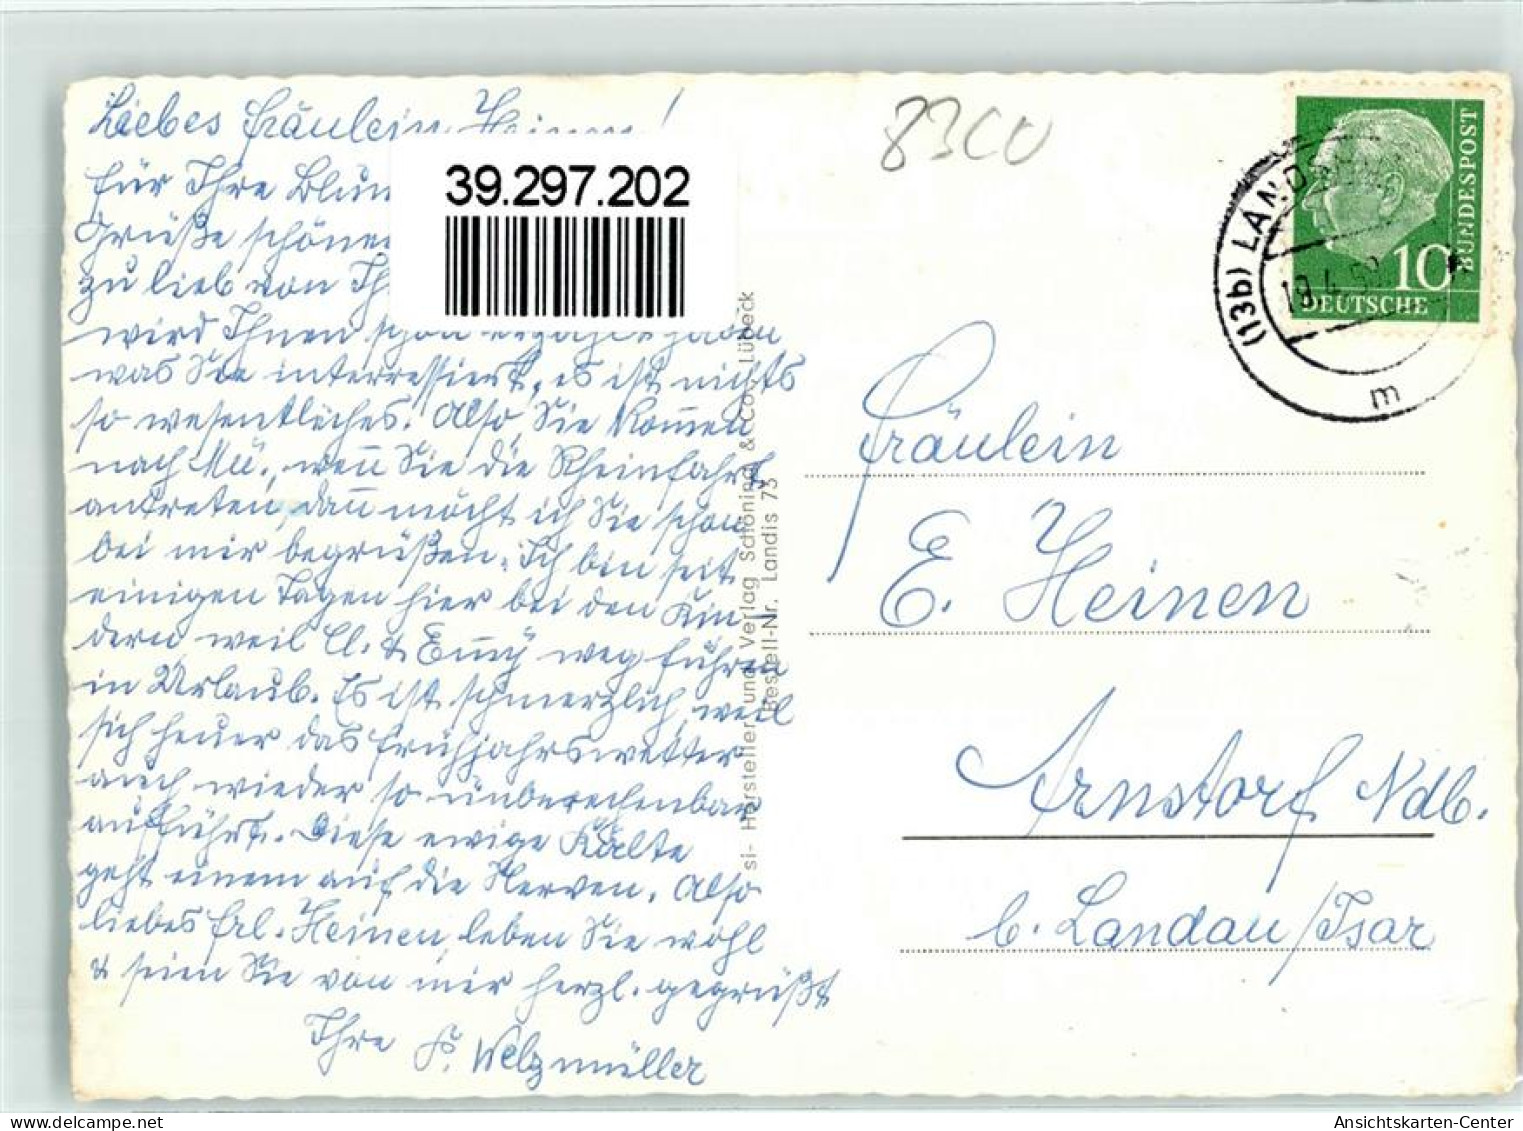 Liebes Fräulein Heinen!
für Ihre Blum
Grüße schönen
zu lieb von Ih
wird Ihnen schon erzählt haben
was Sie interressiert, es ist nichts
so wesentliches. Also, Sie kom̄en
nach Mü., wen̄ Sie die Rheinfahrt
antreten, dan̄ möcht ich Sie schon
bei mir begrüßen. Ich bin seit
einigen Tagen hier bei den Kin-
dern weil & Em̄y wegführen
in Urlaub. Es ist schmerzlich, weil
sich heuer das Frühjahrswetter
auch wieder so unberechenbar
aufführt. Diese ewige Kälte
geht einem auf die Nerven. Also
liebes Frl. Heinen, leben Sie wohl
& seien Sie von mir herzl. gegrüßt
Ihre Welzmüller
39.297.202
si- Hersteller und Verlag Schöning & Co., Lübeck
Bestell-Nr. Landis 73
8300
(13b) LANDSHUT
19.4.58
m
10
DEUTSCHE
BUNDESPOST
Fräulein
E. Heinen
Arnstorf Ndb.
b. Landau/Isar
www.delcampe.net
Ansichtskarten-Center